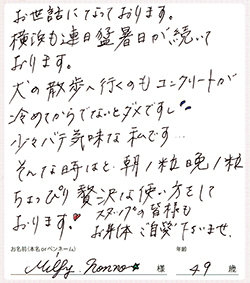 お世話になっております。
横浜も連日猛暑日が続いて
おります。
犬の散歩へ行くのもコンクリートが
冷めてからでないとダメですし
少々バテ気味な私です…
そんな時ほど、朝1粒晩1粒
ちょっぴり贅沢な使い方をして
おります。♥ スタッフの皆様も
お身体ご自愛下さいませ。
お名前(本名orペンネーム) 年齢
Milfy nonno☆ 様 49 歳